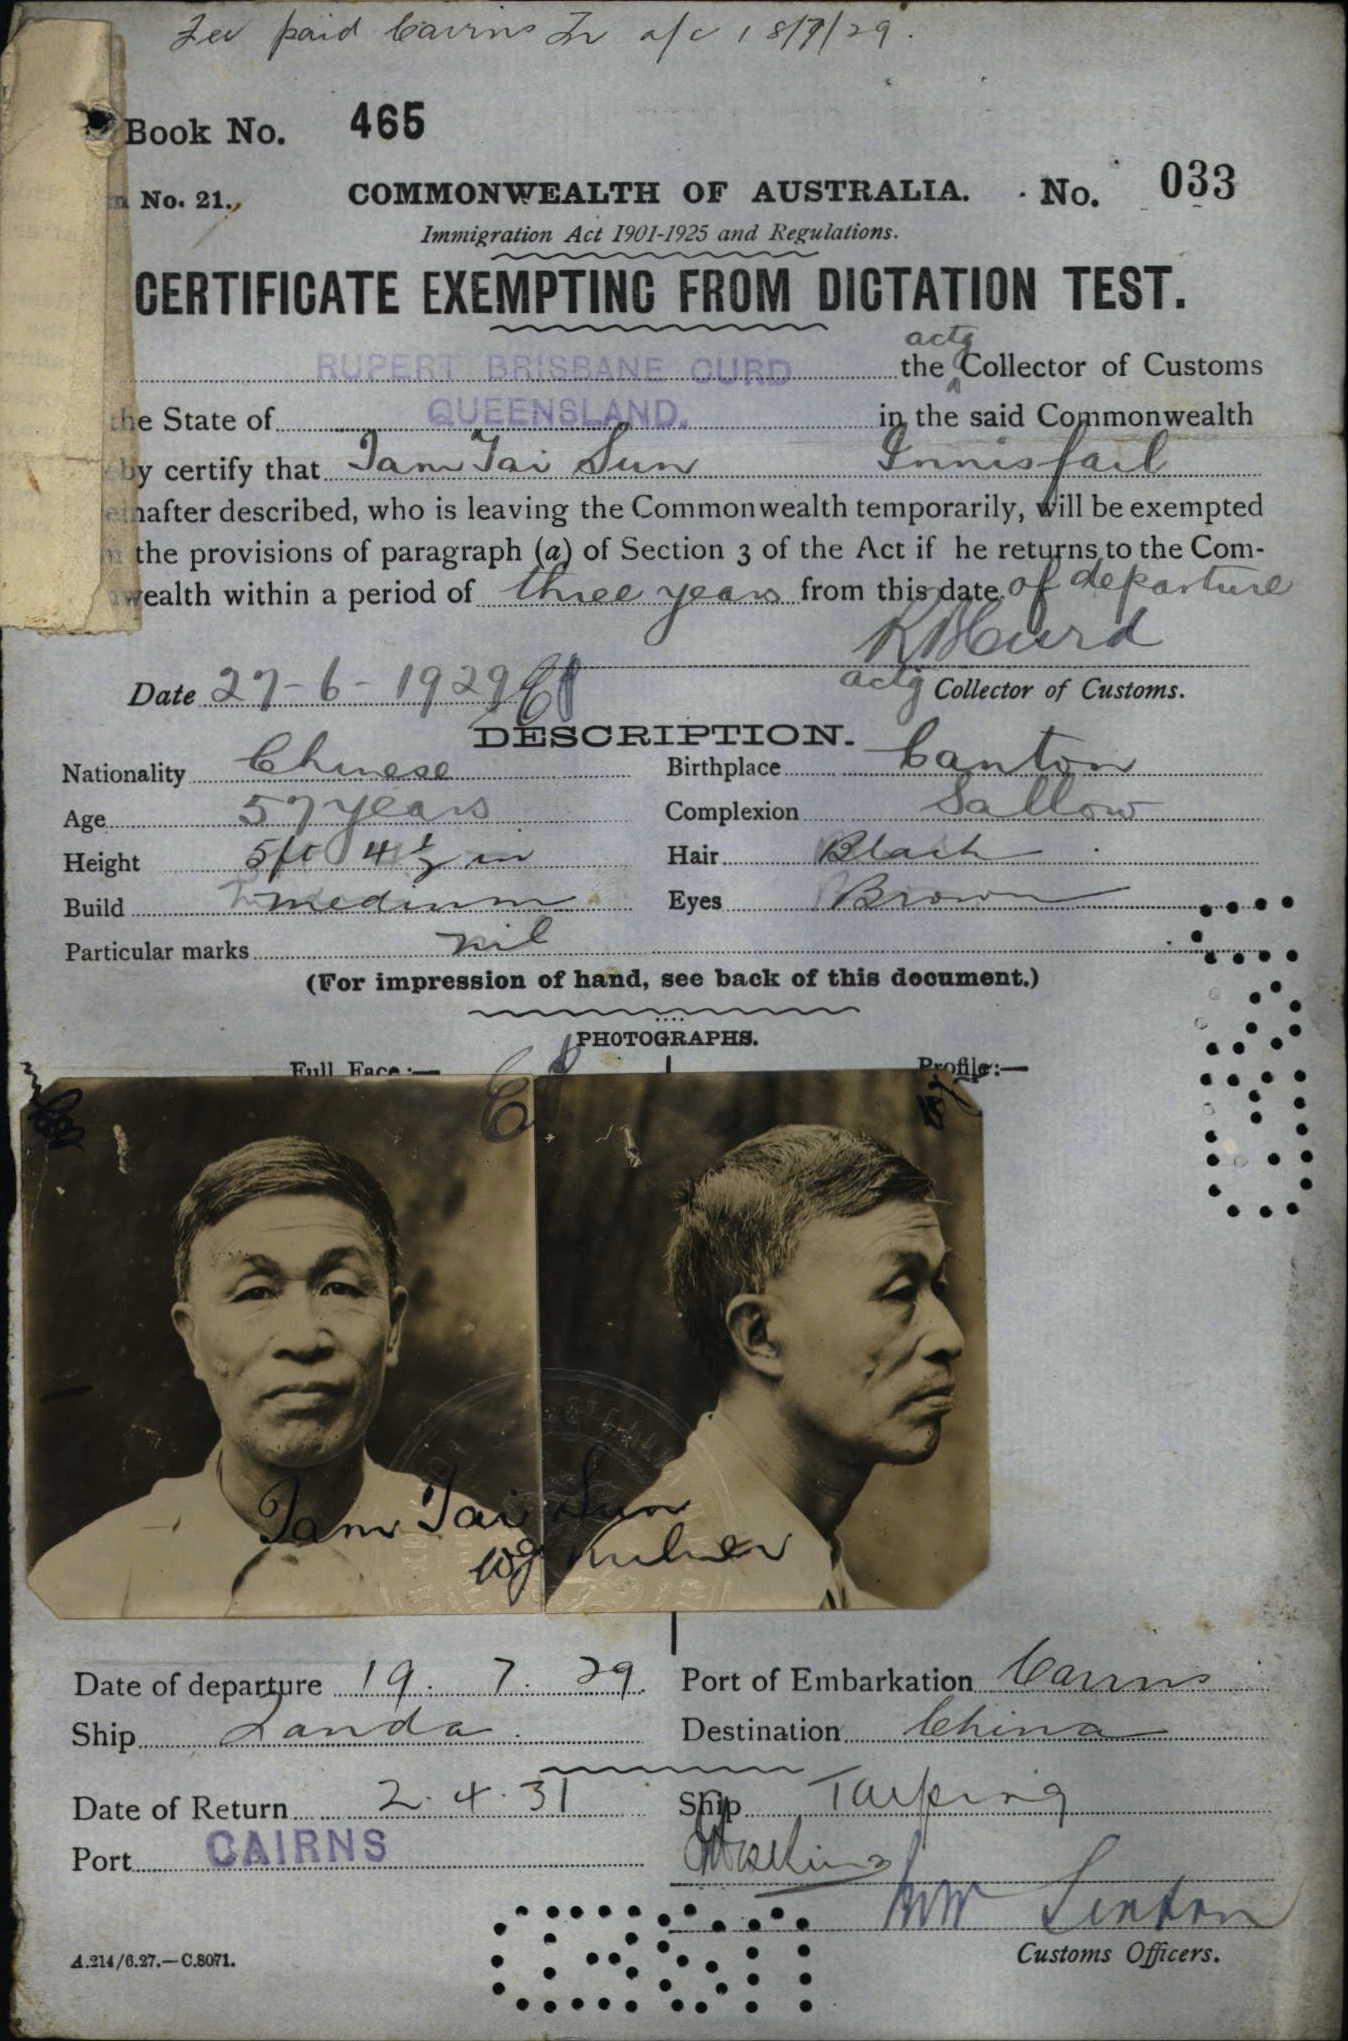 Fee paid Cairns In a/c 18/7/29.
Book No. 465
No. 21. COMMONWEALTH OF AUSTRALIA. No. 033
Immigration Act 1901-1925 and Regulations.
CERTIFICATE EXEMPTING FROM DICTATION TEST.
actg
RUPERT BRISBANE CURD the Collector of Customs
the State of QUEENSLAND. in the said Commonwealth
by certify that Tam Tai Sun Innisfail
einafter described, who is leaving the Commonwealth temporarily, will be exempted
the provisions of paragraph (a) of Section 3 of the Act if he returns to the Com-
wealth within a period of three years from this date of departure
RBCurd
Date 27-6-1929 actg Collector of Customs.
DESCRIPTION.
Nationality Chinese Birthplace Canton
Age 57 years Complexion Sallow
Height 5ft 4½ in Hair Black
Build medium Eyes Brown
Particular marks nil
(For impression of hand, see back of this document.)
PHOTOGRAPHS.
Full Face:— Profile:—
Tam Tai Sun
Date of departure 19. 7. 29. Port of Embarkation Cairns
Ship Tanda. Destination China
Date of Return 2.4.31 Ship Taiping
Port CAIRNS
Linton
A.214/6.27.—C.8071. Customs Officers.